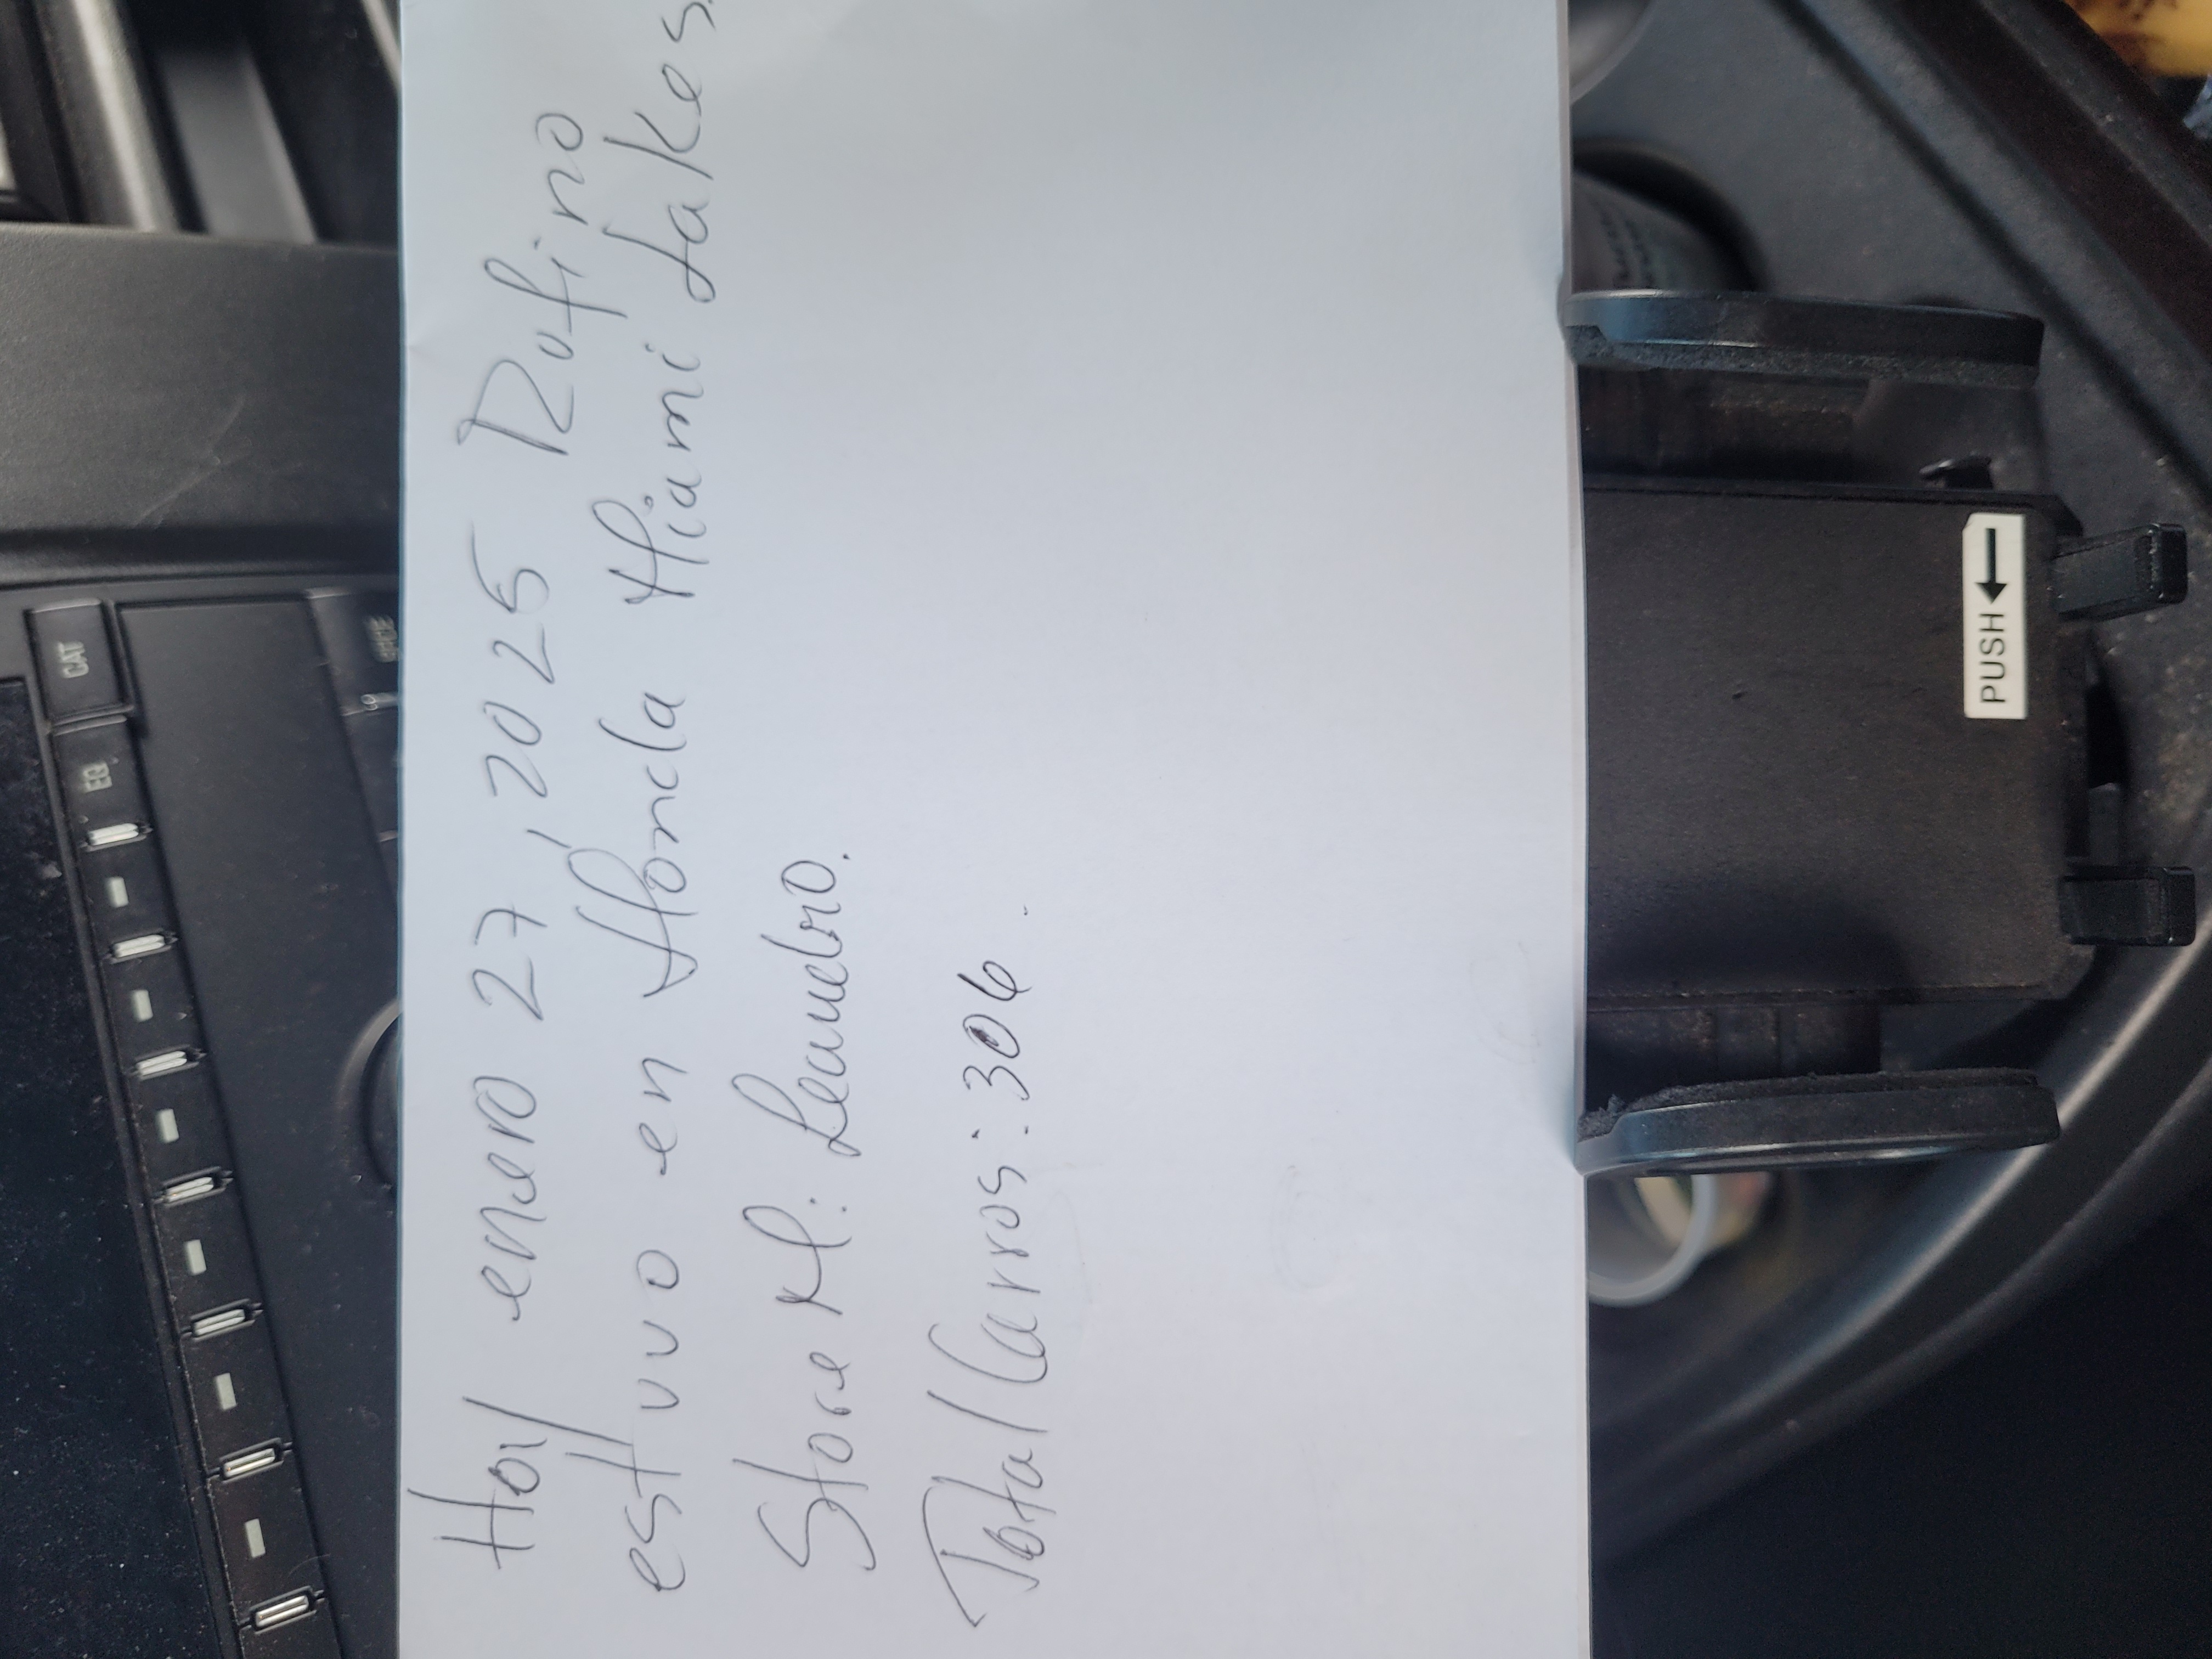 Hoy enero 27, 2025 Rufino
estuvo en Honda Miami Lakes.
Store M: Leandro.
Total Carros: 306.
PUSH
CAT
EQ